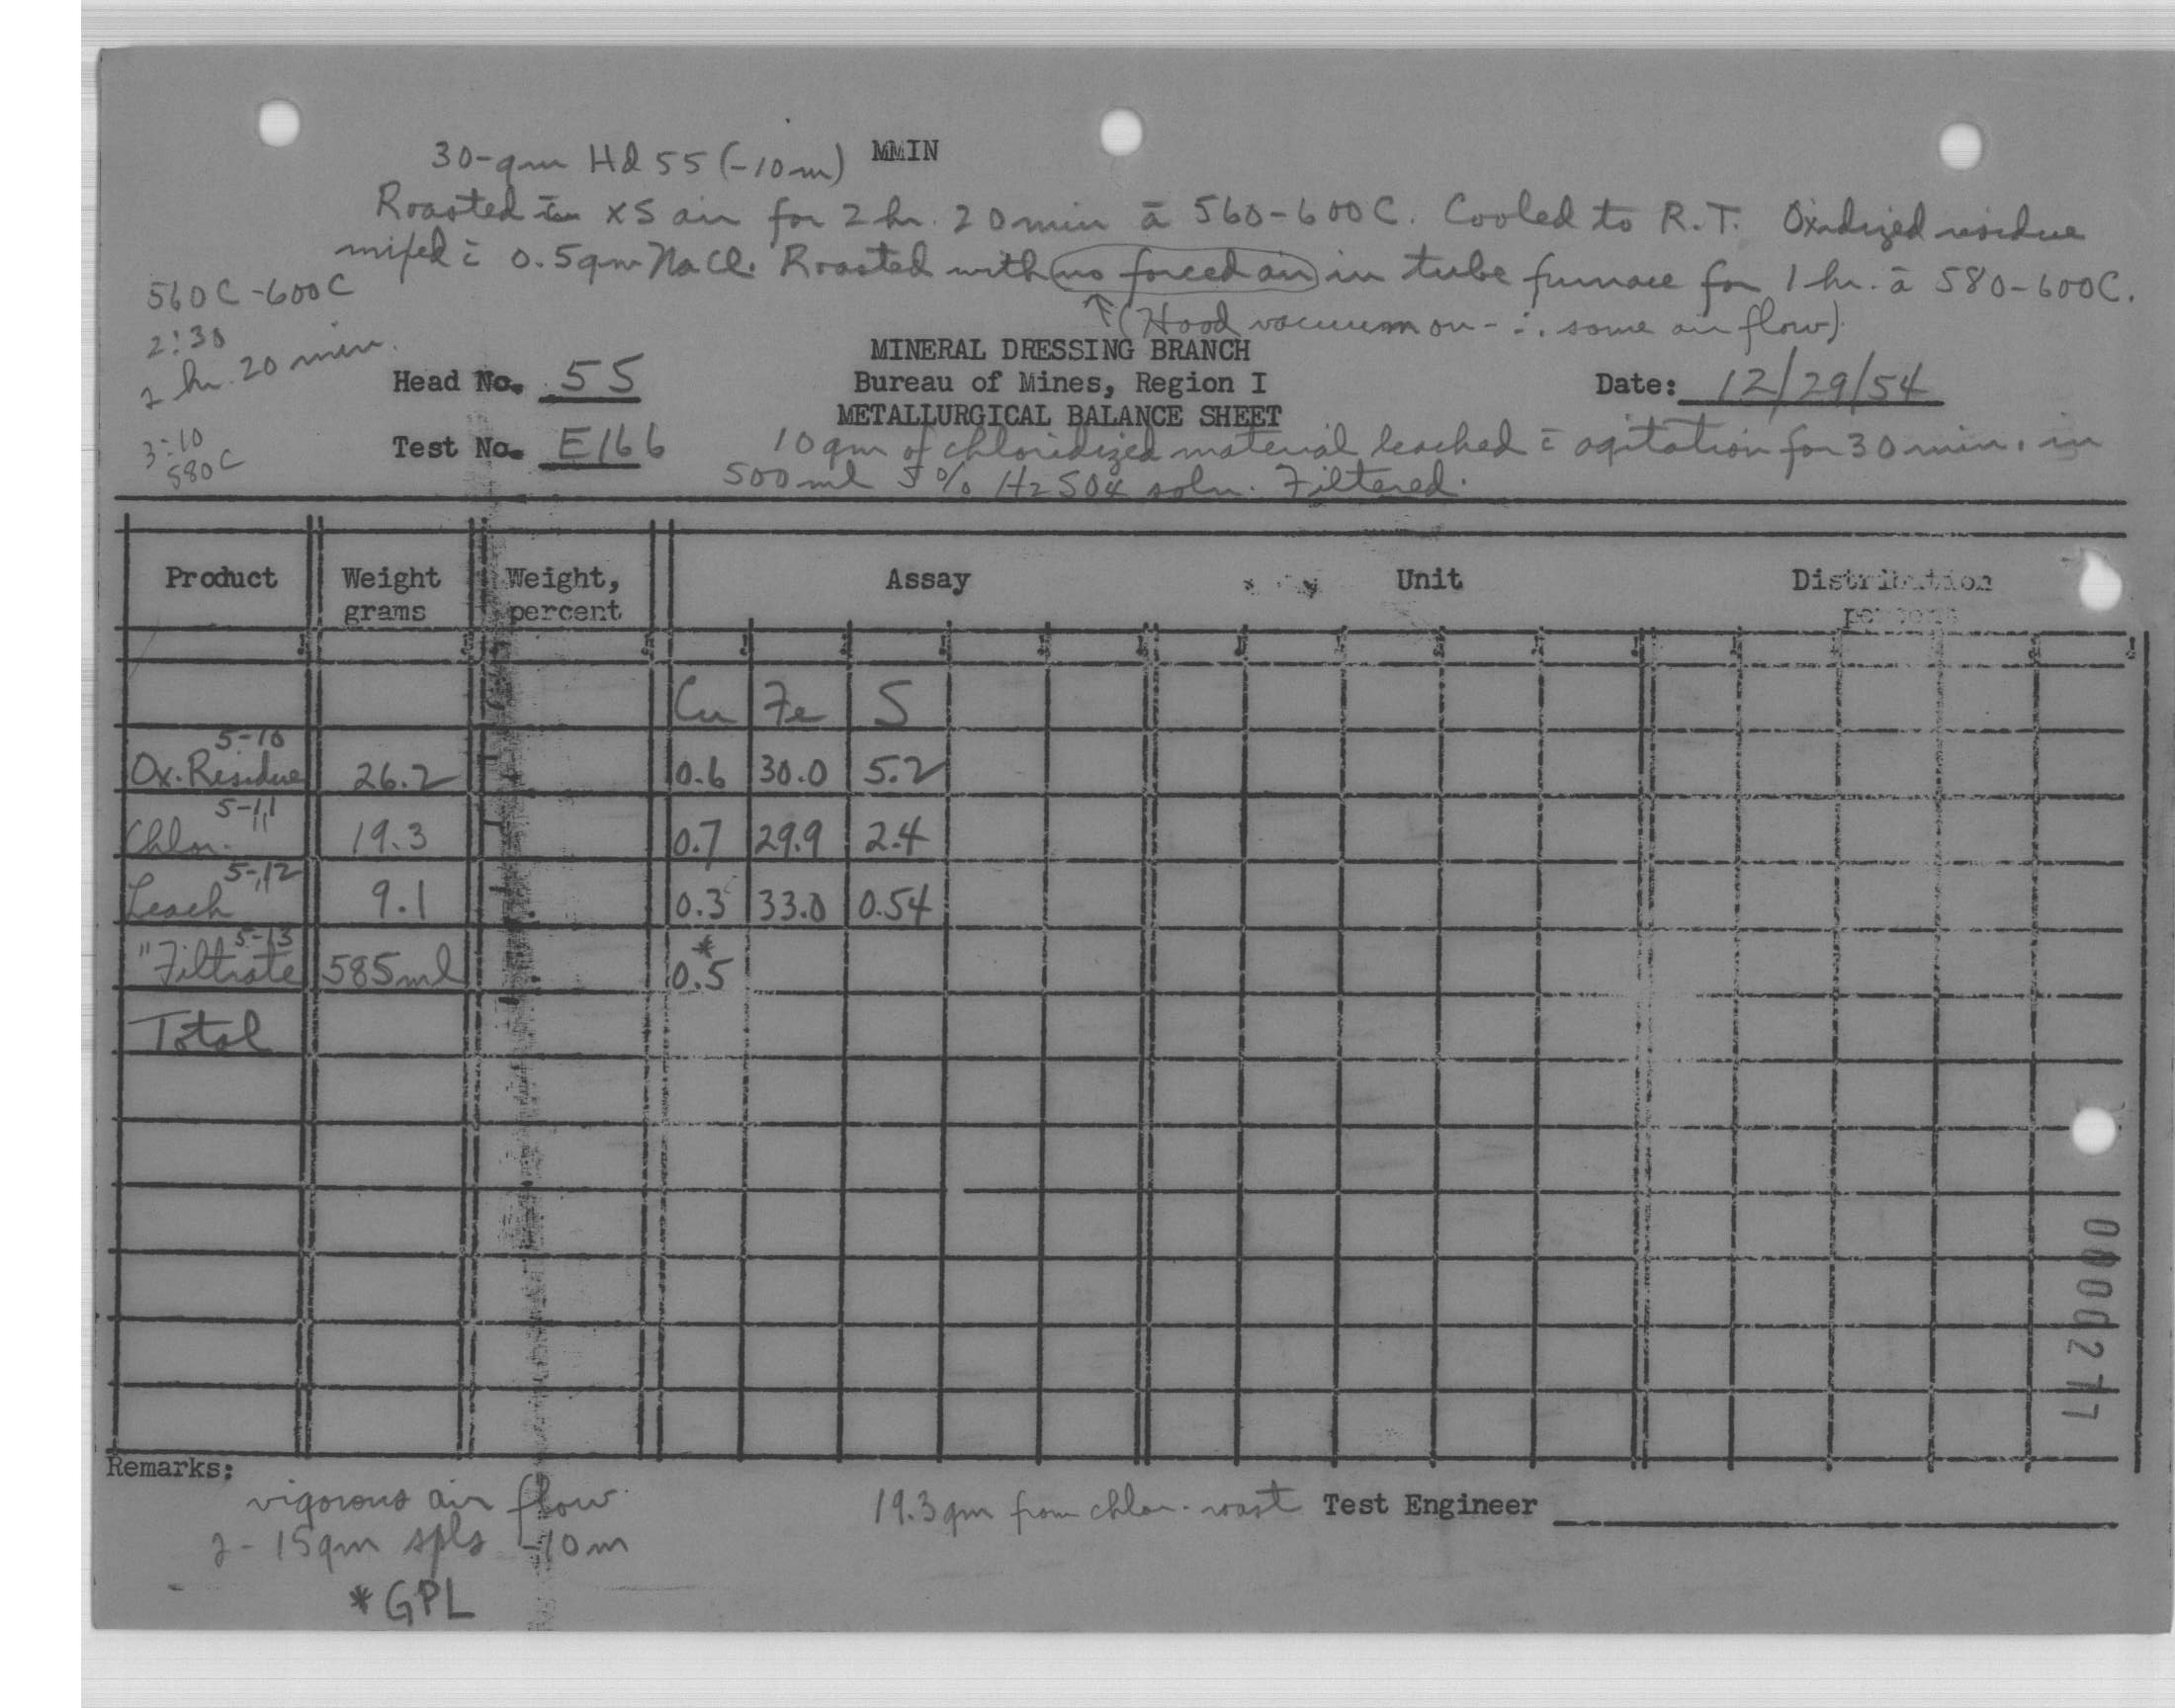 30-gm Hd 55 (-10m) MMIN
Roasted in xs air for 2 hr. 20 min ā 560-600C. Cooled to R.T. Oxidized residue
mixed c̄ 0.5gm NaCl. Roasted with no forced air in tube furnace for 1 hr. ā 580-600C.
↑(Hood vacuum on - ∴ some air flow)
560C-600C
2:30
2 hr. 20 min.
3:10
580C
MINERAL DRESSING BRANCH
Head No. 55 Bureau of Mines, Region I Date: 12/29/54
METALLURGICAL BALANCE SHEET
Test No. E166 10 gm of chloridized material leached c̄ agitation for 30 min. in
500 ml 5% H2SO4 soln. Filtered.
Product Weight grams Weight, percent Assay Unit Distribution percent
Cu Fe S
5-10
Ox. Residue 26.2 0.6 30.0 5.2
5-11
Chlor. " 19.3 0.7 29.9 2.4
5-12
Leach " 9.1 0.3 33.0 0.54
5-13
" Filtrate 585ml 0.5*
Total
0000277
Remarks:
vigorous air flow.
19.3gm from chlor. roast Test Engineer
2-15gm spls -10m
*GPL